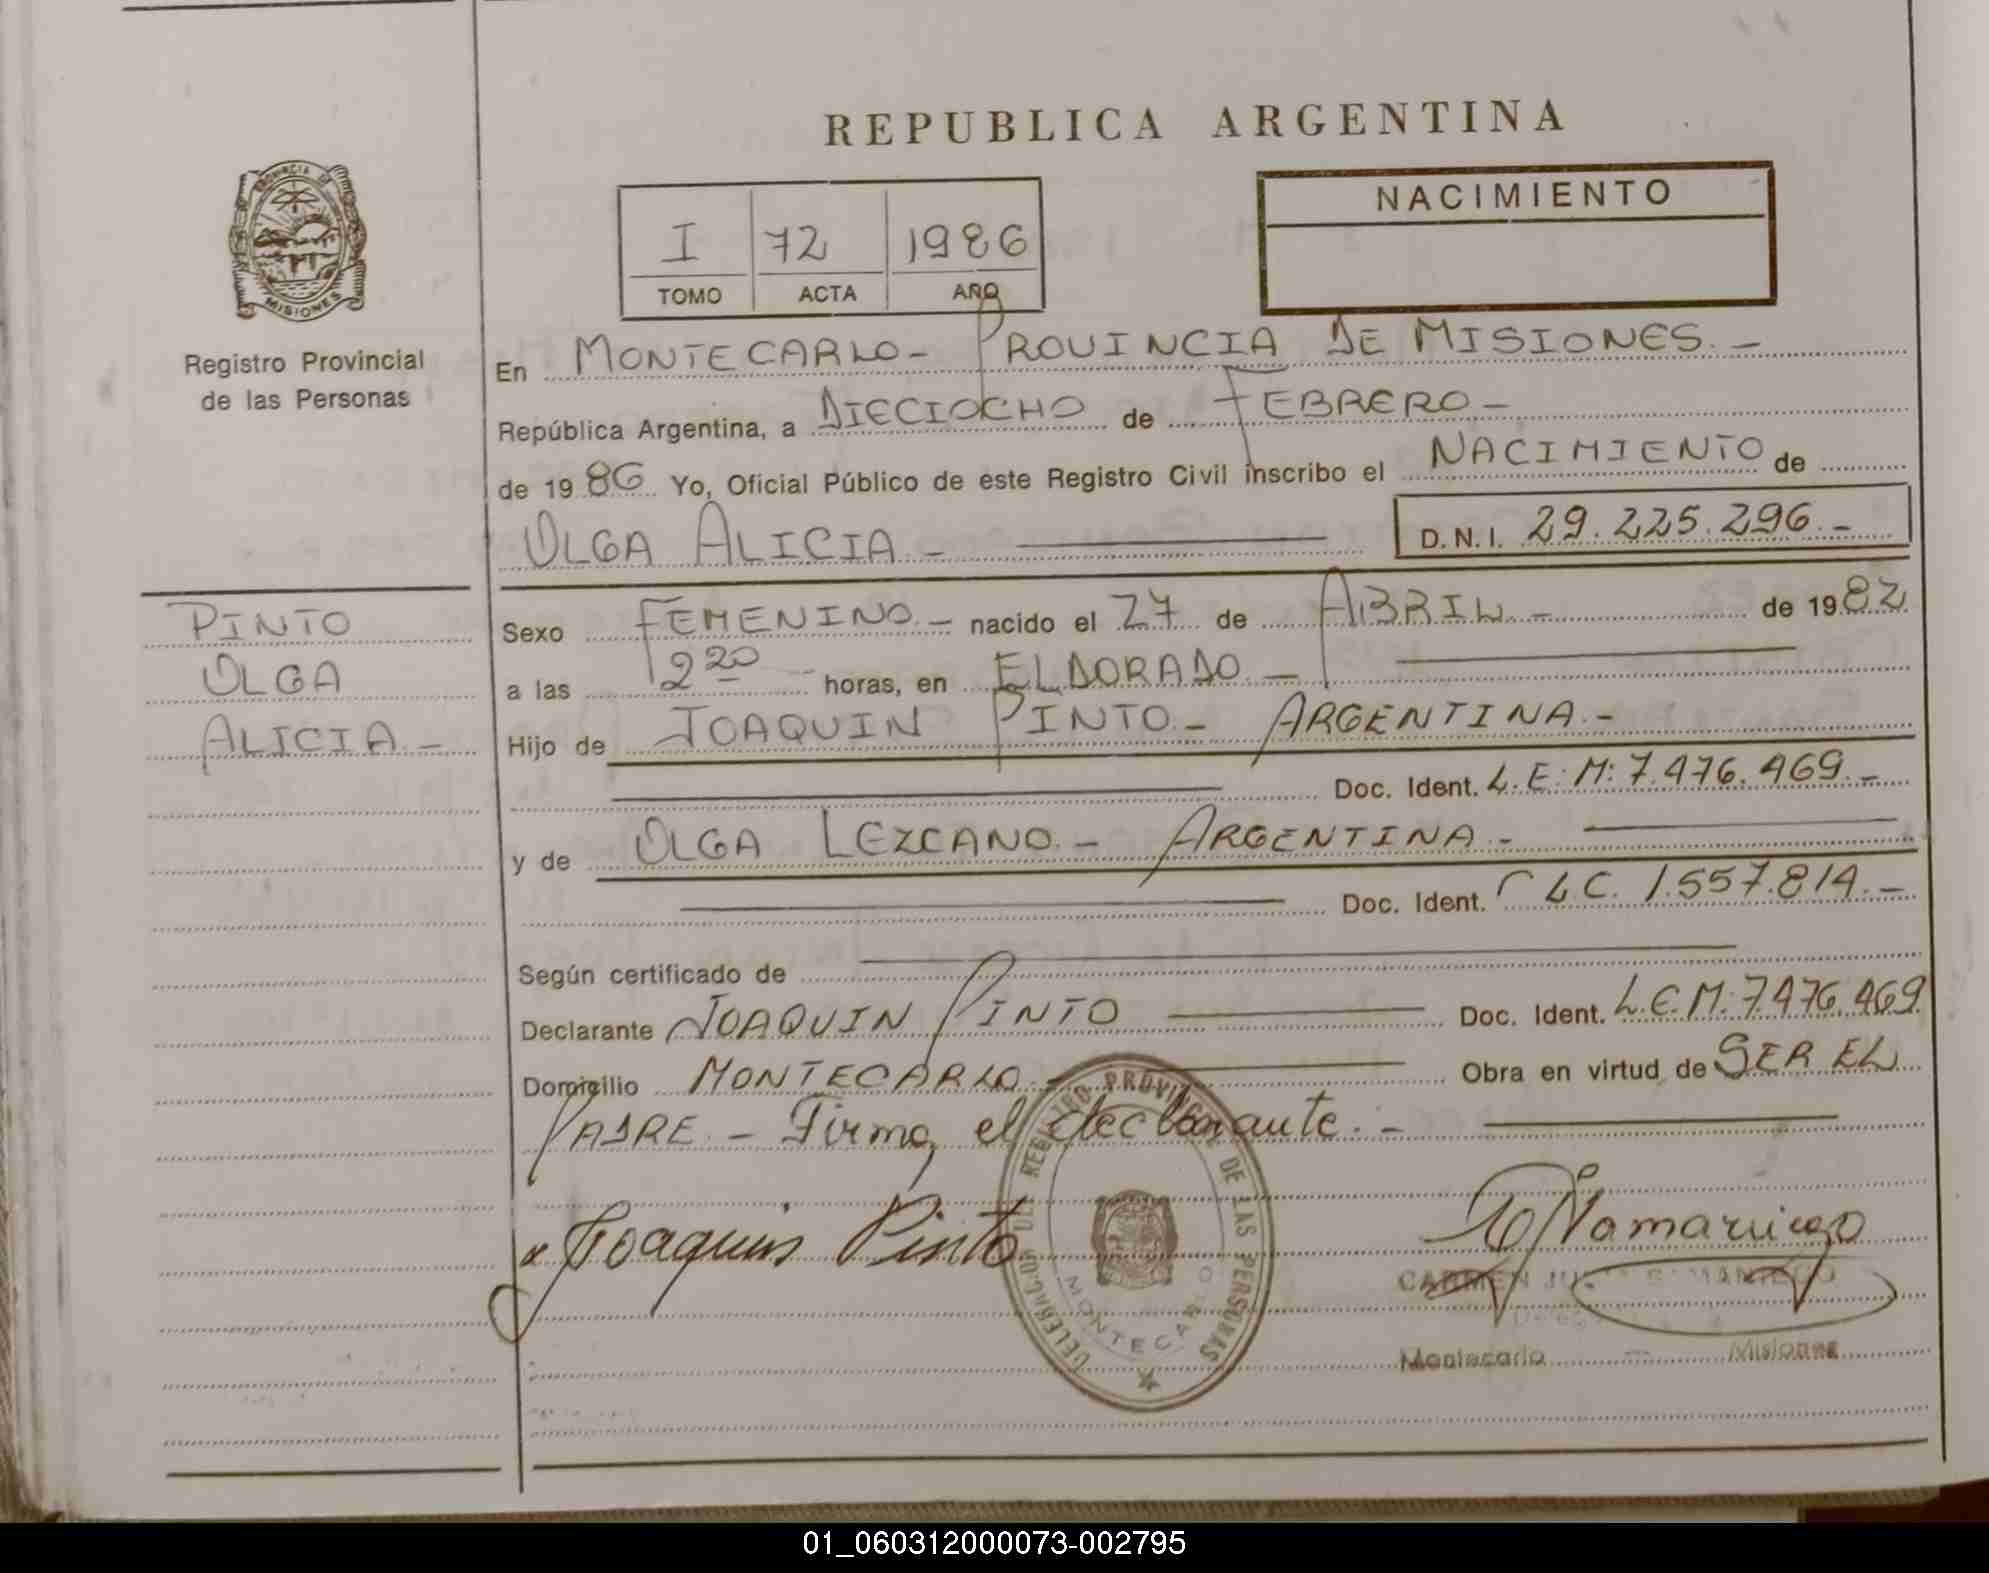 REPUBLICA ARGENTINA
PROVINCIA DE
MISIONES
Registro Provincial
de las Personas
NACIMIENTO
I 72 1986
TOMO ACTA AÑO
En MONTECARLO- PROVINCIA DE MISIONES.-
República Argentina, a DIECIOCHO de FEBRERO-
de 1986 Yo, Oficial Público de este Registro Civil inscribo el NACIMIENTO de
OLGA ALICIA.- D.N.I. 29.225.296.-
PINTO
OLGA
ALICIA.-
Sexo FEMENINO.- nacido el 27 de ABRIL.- de 1982
a las 2 20 horas, en ELDORADO.-
Hijo de JOAQUIN PINTO.- ARGENTINA.-
Doc. Ident. L.E.: M: 7.476.469.-
y de OLGA LEZCANO.- ARGENTINA.-
Doc. Ident. L.C. 1.557.814.-
Según certificado de
Declarante JOAQUIN PINTO Doc. Ident. L.E.M: 7.476.469
Domicilio MONTECARLO Obra en virtud de SER EL
PADRE.- Firma, el declarante.-
Joaquin Pinto
DELEGACION DEL REGISTRO PROVINCIAL DE LAS PERSONAS
MONTECARLO
CARMEN SAMANIEGO
Montecarlo - Misiones
01_060312000073-002795